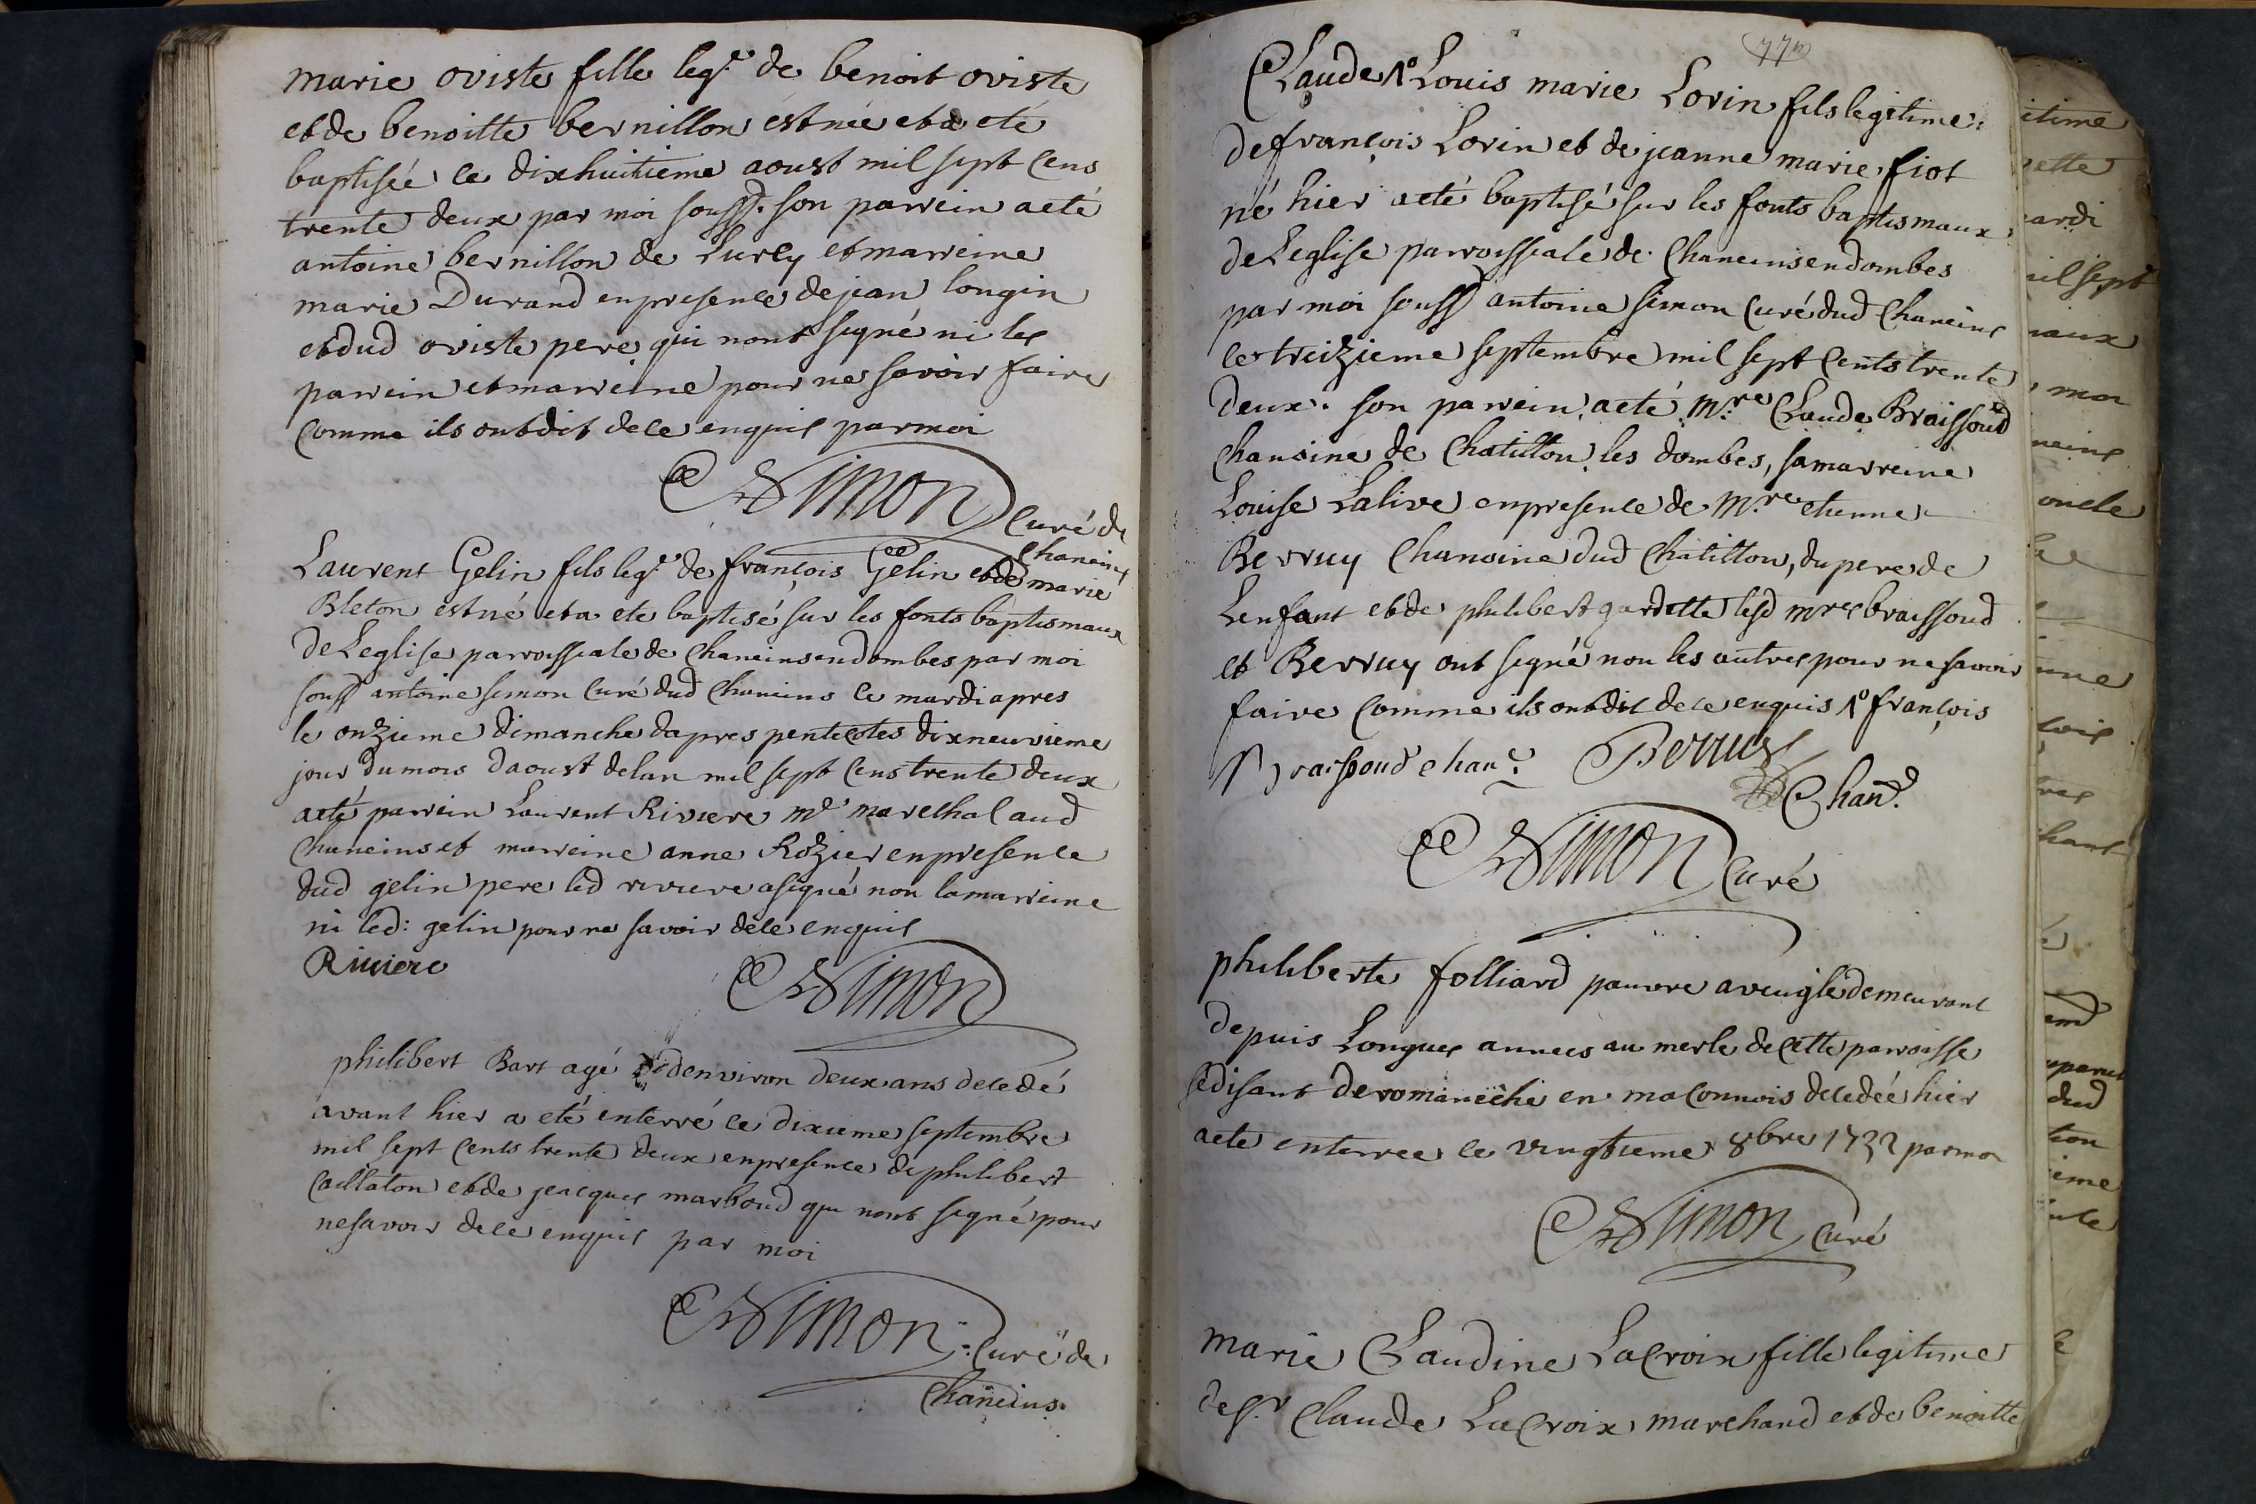 marie oviste fille leg.e de benoit oviste
et de benoitte bernillon est née et a eté
baptisée le dixhuitieme aoust mil sept cens
trente deux par moi souss.d son parrein a eté
antoine bernillon de Lurcy et marreine
marie Durand en presence de jean longin
et dud oviste pere qui nont signé ni les
parrein et marreine pour ne savoir faire
comme ils ont dit de ce enquis par moi
Simon curé de
Chaneins
Laurent Gelin fils leg.e de françois Gelin et de marie
Bleton est né et a eté baptisé sur les fonts baptismaux
de Leglise parroissiale de Chaneins en dombes par moi
soussd antoine simon curé dud Chaneins le mardi apres
le onzieme dimanche dapres pentecotes dixneuvieme
jour du mois daoust de lan mil sept cens trente deux
a eté parrein Laurent Riviere m.e marechal aud
Chaneins et marreine anne Rozier en presence
dud gelin pere led riviere a signé non la marreine
ni led: gelin pour ne savoir de ce enquis
Riviere Simon
philibert Bart agé denviron deux ans decedé
avant hier a eté enterré le dixieme septembre
mil sept cents trente deux en presence de philibert
Caillaton et de jeacques marboud qui nont signé pour
ne savoir de ce enquis par moi
Simon curé de
Chaneins.
77
Claude 1º Louis marie Lorin fils legitime
de françois Lorin et de jeanne marie fiot
né hier a eté baptisé sur les fonts baptismaux
de Leglise parroissiale de Chaneins en dombes
par moi soussd antoine simon curé dud Chaneins
le treizieme septembre mil sept cents trente
deux. son parrein a eté m.re Claude Braissoud
chanoine de Chatillon les dombes, sa marreine
Louise Lalive en presence de m.re etienne
Berruy Chanoine dud Chatillon, du pere de
Lenfant et de philibert gardette lesd mres braissoud
et Berruy ont signé non les autres pour ne savoir
faire comme ils ont dit de ce enquis 1º françois
Braissoud chan.e Berruy
Chan.e
Simon curé
philiberte folliard pauvre aveugle demeurant
depuis Longues années au merle de cette parroisse
se disant de romaneche en maconnois decedée hier
a eté enterree le vingtieme 8bre 1732 par moi
Simon curé
marie Claudine LaCroix fille legitime
de s.r Claude LaCroix marchand et de benoitte